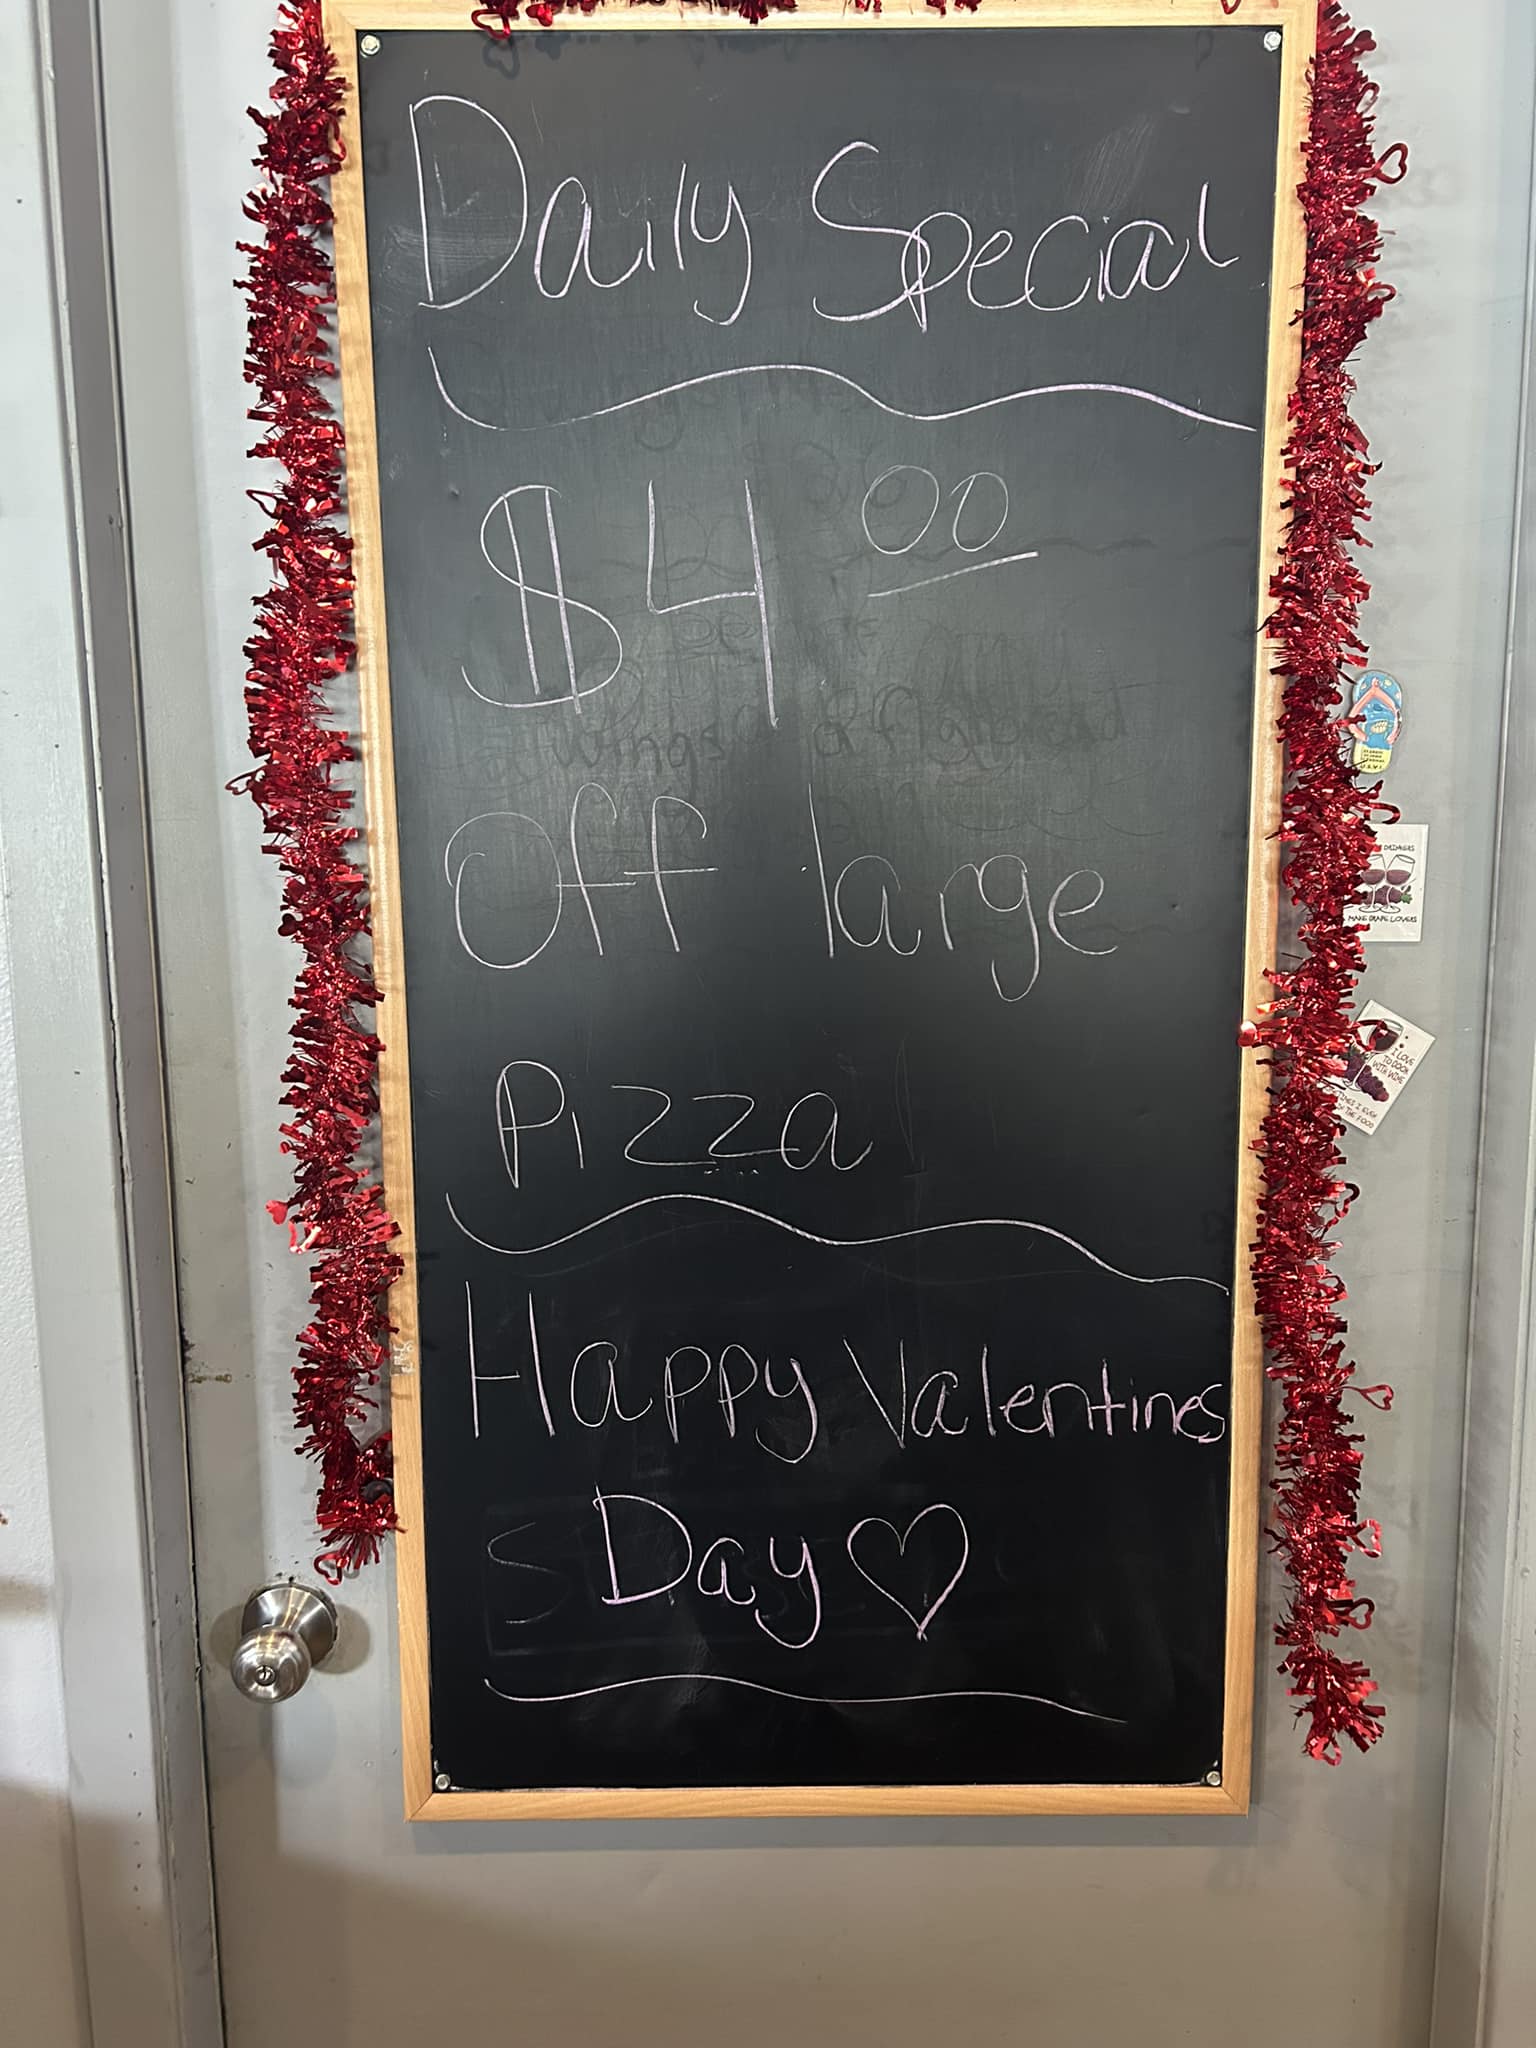 Daily Special
$4 00
Off large
Pizza
Happy Valentines
s Day
wings & flatbread
MAKE GRAPE LOVERS
I LOVE
TO COOK
WITH WINE
TIMES I EVEN
THE FOOD